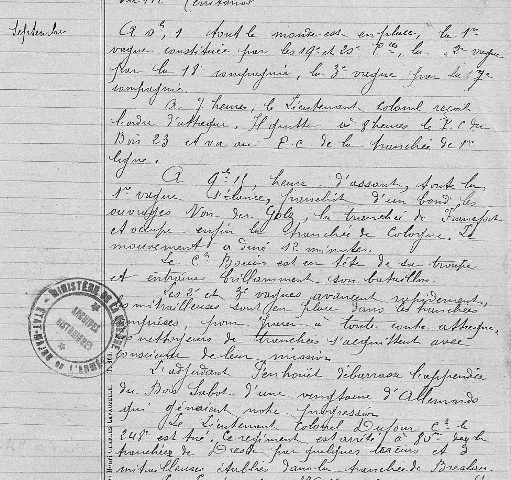 Territorial
Septembre
A 5h,1 tout le monde est en place, la 1re
vague constituée par les 19e et 20e Cies, la 2e vague
par la 18e compagnie, la 3e vague par la 17e
compagnie.
A 7 heures, le Lieutenant Colonel reçoit
l'ordre d'attaque. Il quitte à 8 heures le P.C. du
Bois 23 et va au P.C. de la tranchée de 1re
ligne.
A 9h 15, heure d'assaut, toute la
1re vague s'élance, franchit d'un bond les
ouvrages Von der Goltz, la tranchée de Francfort
et occupe enfin la tranchée de Cologne. Le
mouvement a duré 12 minutes.
Le Ct est en tête de sa troupe
et entraine brillamment son bataillon.
Les 2e et 3e vagues avancent rapidement,
les mitrailleuses sont en place dans les tranchées
conquises, pour parer à toute contre attaque,
les nettoyeurs de tranchées s'acquittent avec
conscience de leur mission.
L'adjudant Penhouët débarrasse l'appendice
du Bois Sabot d'une vingtaine d'Allemands
qui gênaient notre progression.
Le Lieutenant Colonel Dufour Ct le
248e est tué. Ce régiment est arrêté à 80m de la
tranchée de par quelques tireurs et 3
mitrailleuses établies dans la tranchée de Breslau.
MINISTÈRE DE LA GUERRE
ARCHIVES
HISTORIQUES
ETAT-MAJOR DE L'ARMÉE